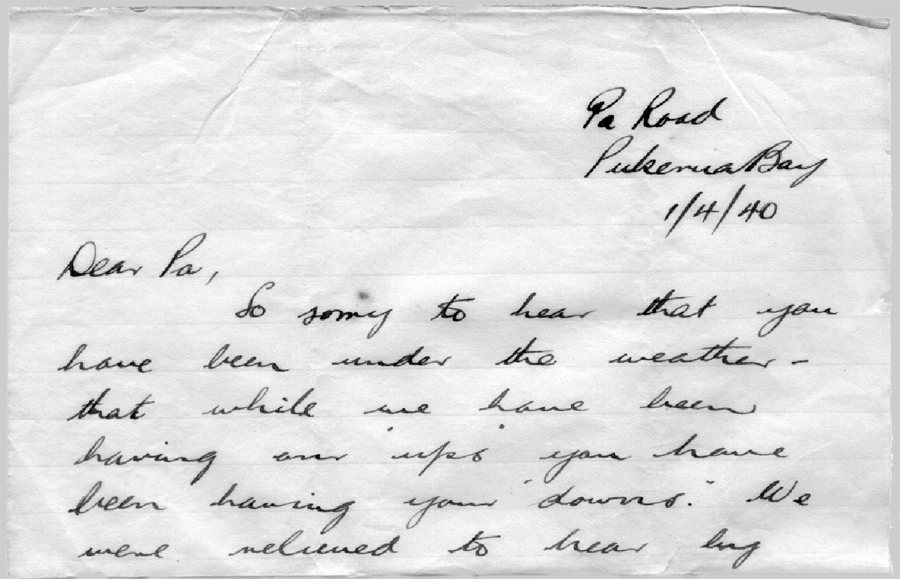 Pa Road
Pukerua Bay
1/4/40
Dear Pa,
So sorry to hear that you
have been under the weather –
that while we have been
having our "ups" you have
been having your "downs." We
were relieved to hear by